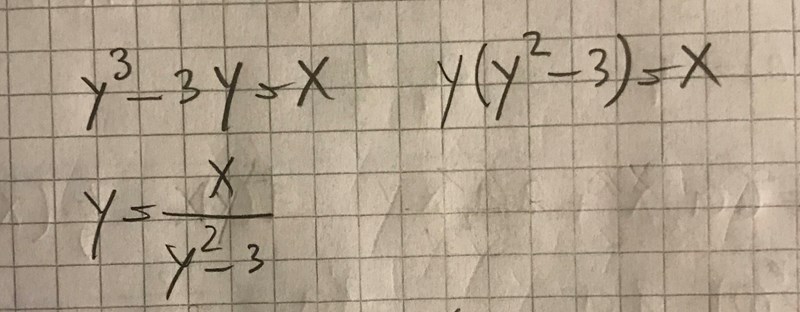 y³ - 3y = x    y(y² - 3) = x
y = x / (y² - 3)